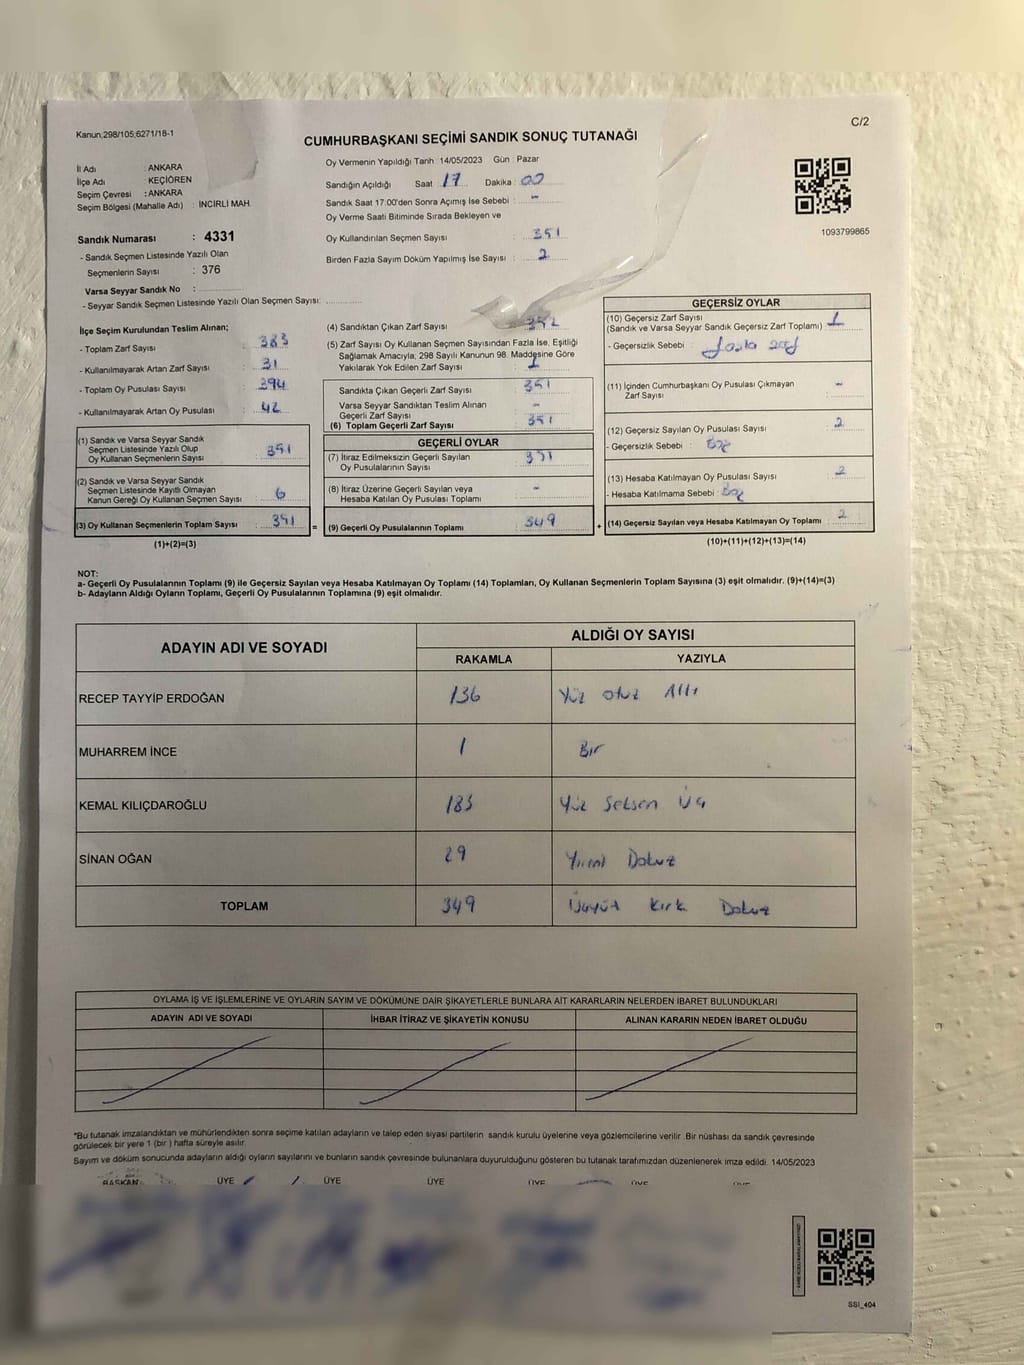 Kanun;298/105;6271/18-1
C/2
CUMHURBAŞKANI SEÇİMİ SANDIK SONUÇ TUTANAĞI
İl Adı : ANKARA
İlçe Adı : KEÇİÖREN
Seçim Çevresi : ANKARA
Seçim Bölgesi (Mahalle Adı) : İNCİRLİ MAH.
Oy Vermenin Yapıldığı Tarih : 14/05/2023 Gün : Pazar
Sandığın Açıldığı Saat : 17 Dakika : 00
Sandık Saat 17:00'den Sonra Açımış İse Sebebi : -
Oy Verme Saati Bitiminde Sırada Bekleyen ve
Oy Kullandırılan Seçmen Sayısı : 351
Birden Fazla Sayım Döküm Yapılmış İse Sayısı : 2
1093799865
Sandık Numarası : 4331
- Sandık Seçmen Listesinde Yazılı Olan
Seçmenlerin Sayısı : 376
Varsa Seyyar Sandık No :
- Seyyar Sandık Seçmen Listesinde Yazılı Olan Seçmen Sayısı:
İlçe Seçim Kurulundan Teslim Alınan;
- Toplam Zarf Sayısı : 383
- Kullanılmayarak Artan Zarf Sayısı : 31
- Toplam Oy Pusulası Sayısı : 394
- Kullanılmayarak Artan Oy Pusulası : 42
(1) Sandık ve Varsa Seyyar Sandık
Seçmen Listesinde Yazılı Olup
Oy Kullanan Seçmenlerin Sayısı : 351
(2) Sandık ve Varsa Seyyar Sandık
Seçmen Listesinde Kayıtlı Olmayan
Kanun Gereği Oy Kullanan Seçmen Sayısı : 6
(3) Oy Kullanan Seçmenlerin Toplam Sayısı : 351
(1)+(2)=(3)
(4) Sandıktan Çıkan Zarf Sayısı : 352
(5) Zarf Sayısı Oy Kullanan Seçmen Sayısından Fazla İse, Eşitliği
Sağlamak Amacıyla; 298 Sayılı Kanunun 98. Maddesine Göre
Yakılarak Yok Edilen Zarf Sayısı : 1
Sandıkta Çıkan Geçerli Zarf Sayısı : 351
Varsa Seyyar Sandıktan Teslim Alınan
Geçerli Zarf Sayısı : -
(6) Toplam Geçerli Zarf Sayısı : 351
GEÇERLİ OYLAR
(7) İtiraz Edilmeksizin Geçerli Sayılan
Oy Pusulalarının Sayısı : 351
(8) İtiraz Üzerine Geçerli Sayılan veya
Hesaba Katılan Oy Pusulası Toplamı : -
= (9) Geçerli Oy Pusulalarının Toplamı : 349
GEÇERSİZ OYLAR
(10) Geçersiz Zarf Sayısı
(Sandık ve Varsa Seyyar Sandık Geçersiz Zarf Toplamı) : 1
- Geçersizlik Sebebi : fazla zarf
(11) İçinden Cumhurbaşkanı Oy Pusulası Çıkmayan
Zarf Sayısı : -
(12) Geçersiz Sayılan Oy Pusulası Sayısı : 2
- Geçersizlik Sebebi : Boş
(13) Hesaba Katılmayan Oy Pusulası Sayısı : 2
- Hesaba Katılmama Sebebi : Boş
+ (14) Geçersiz Sayılan veya Hesaba Katılmayan Oy Toplamı : 2
(10)+(11)+(12)+(13)=(14)
NOT:
a- Geçerli Oy Pusulalarının Toplamı (9) ile Geçersiz Sayılan veya Hesaba Katılmayan Oy Toplamı (14) Toplamları, Oy Kullanan Seçmenlerin Toplam Sayısına (3) eşit olmalıdır. (9)+(14)=(3)
b- Adayların Aldığı Oyların Toplamı, Geçerli Oy Pusulalarının Toplamına (9) eşit olmalıdır.
ADAYIN ADI VE SOYADI
ALDIĞI OY SAYISI
RAKAMLA YAZIYLA
RECEP TAYYİP ERDOĞAN 136 Yüz otuz Altı
MUHARREM İNCE 1 Bir
KEMAL KILIÇDAROĞLU 183 Yüz Seksen Üç
SİNAN OĞAN 29 Yirmi Dokuz
TOPLAM 349 Üçyüz Kırk Dokuz
OYLAMA İŞ VE İŞLEMLERİNE VE OYLARIN SAYIM VE DÖKÜMÜNE DAİR ŞİKAYETLERLE BUNLARA AİT KARARLARIN NELERDEN İBARET BULUNDUKLARI
ADAYIN ADI VE SOYADI İHBAR İTİRAZ VE ŞİKAYETİN KONUSU ALINAN KARARIN NEDEN İBARET OLDUĞU
*Bu tutanak imzalandıktan ve mühürlendikten sonra seçime katılan adayların ve talep eden siyasi partilerin sandık kurulu üyelerine veya gözlemcilerine verilir. Bir nüshası da sandık çevresinde
görülecek bir yere 1 (bir ) hafta süreyle asılır.
Sayım ve döküm sonucunda adayların aldığı oyların sayılarını ve bunların sandık çevresinde bulunanlara duyurulduğunu gösteren bu tutanak tarafımızdan düzenlenerek imza edildi. 14/05/2023
BAŞKAN ÜYE ÜYE ÜYE ÜYE ÜYE
SSI_404